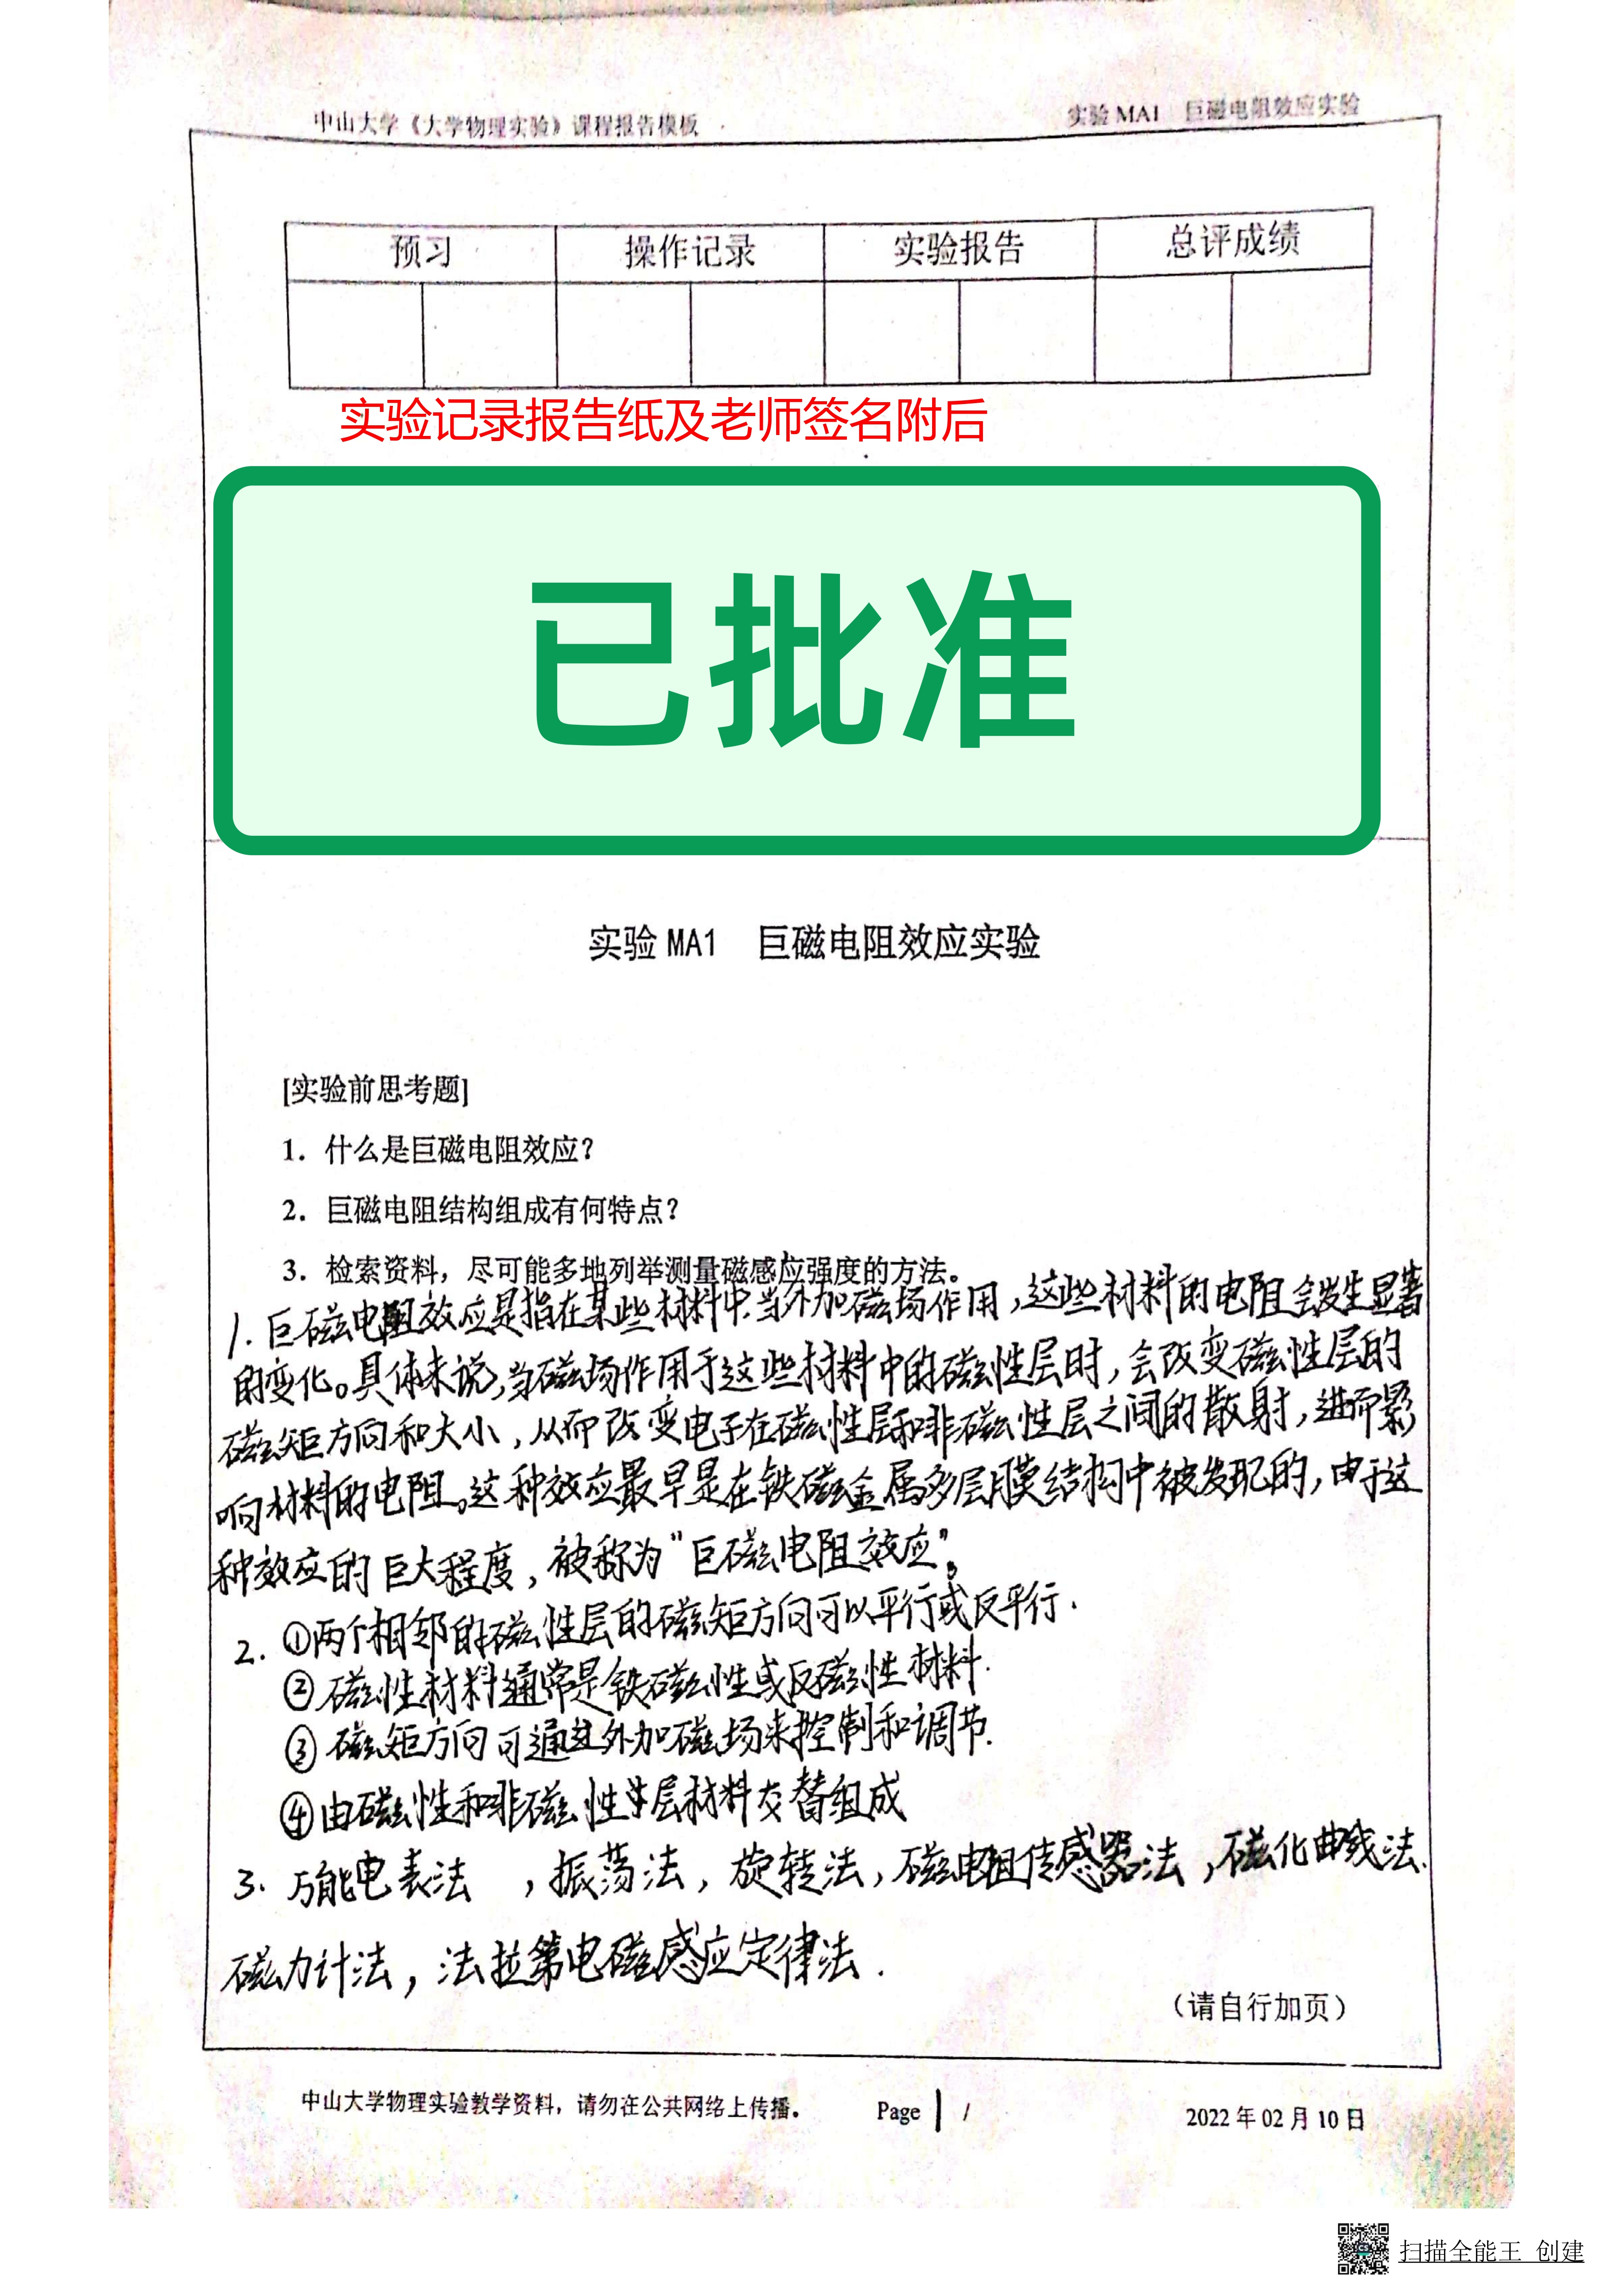 中山大学《大学物理实验》课程报告模板 实验 MA1 巨磁电阻效应实验
预习 操作记录 实验报告 总评成绩
实验记录报告纸及老师签名附后
已批准
实验 MA1 巨磁电阻效应实验
[实验前思考题]
1. 什么是巨磁电阻效应?
2. 巨磁电阻结构组成有何特点?
3. 检索资料，尽可能多地列举测量磁感应强度的方法。
1. 巨磁电阻效应是指在某些材料中,当外加磁场作用,这些材料的电阻会发生显著
的变化。具体来说,当磁场作用于这些材料中的磁性层时,会改变磁性层的
磁矩方向和大小,从而改变电子在磁性层和非磁性层之间的散射,进而影
响材料的电阻。这种效应最早是在铁磁金属多层膜结构中被发现的,由于这
种效应的巨大程度,被称为"巨磁电阻效应"。
2. ①两个相邻的磁性层的磁矩方向可以平行或反平行.
②磁性材料通常是铁磁性或反磁性材料.
③磁矩方向可通过外加磁场来控制和调节.
④由磁性和非磁性层材料交替组成
3. 万能电表法 ,振荡法,旋转法,磁电阻传感器法,磁化曲线法.
磁力计法,法拉第电磁感应定律法.
(请自行加页)
中山大学物理实验教学资料，请勿在公共网络上传播。 Page 1 / 2022 年 02 月 10 日
扫描全能王 创建